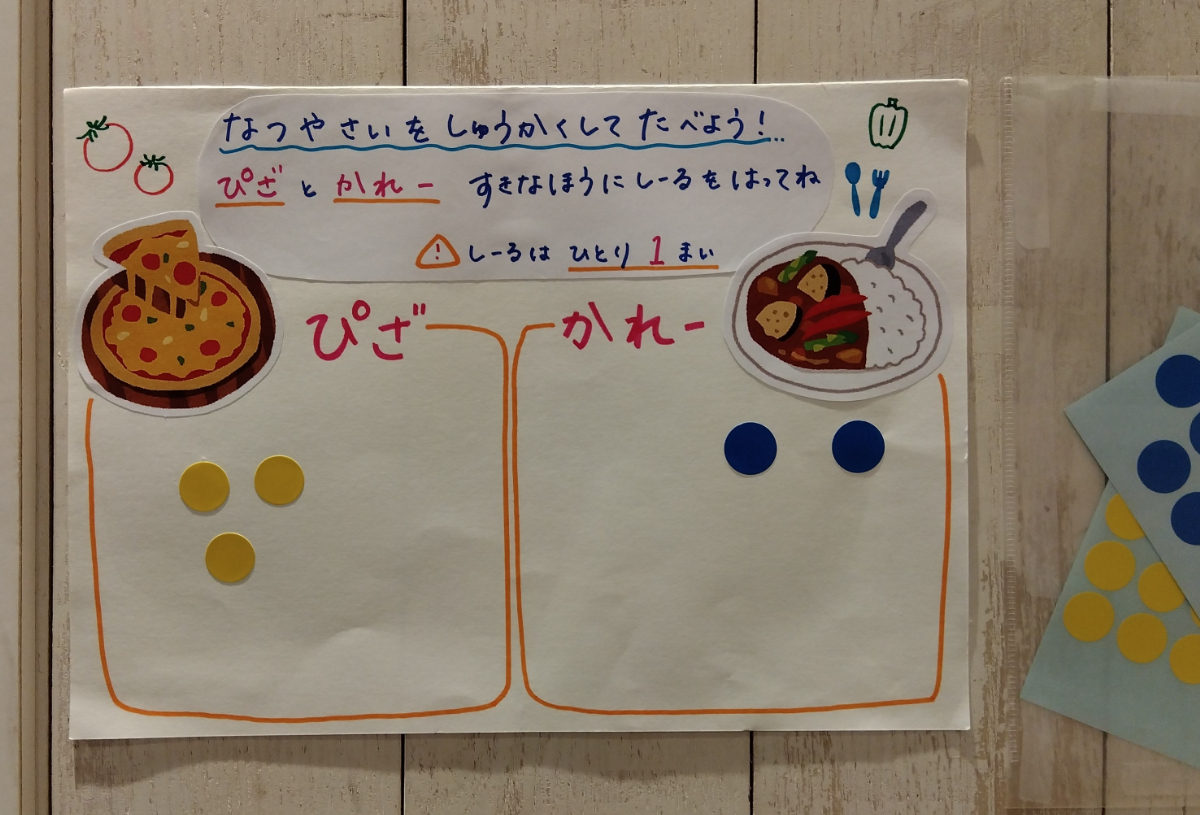 なつやさいを しゅうかくして たべよう!..
ぴざ と かれー すきなほうにしーるをはってね
! しーるは ひとり 1 まい
ぴざ
かれー